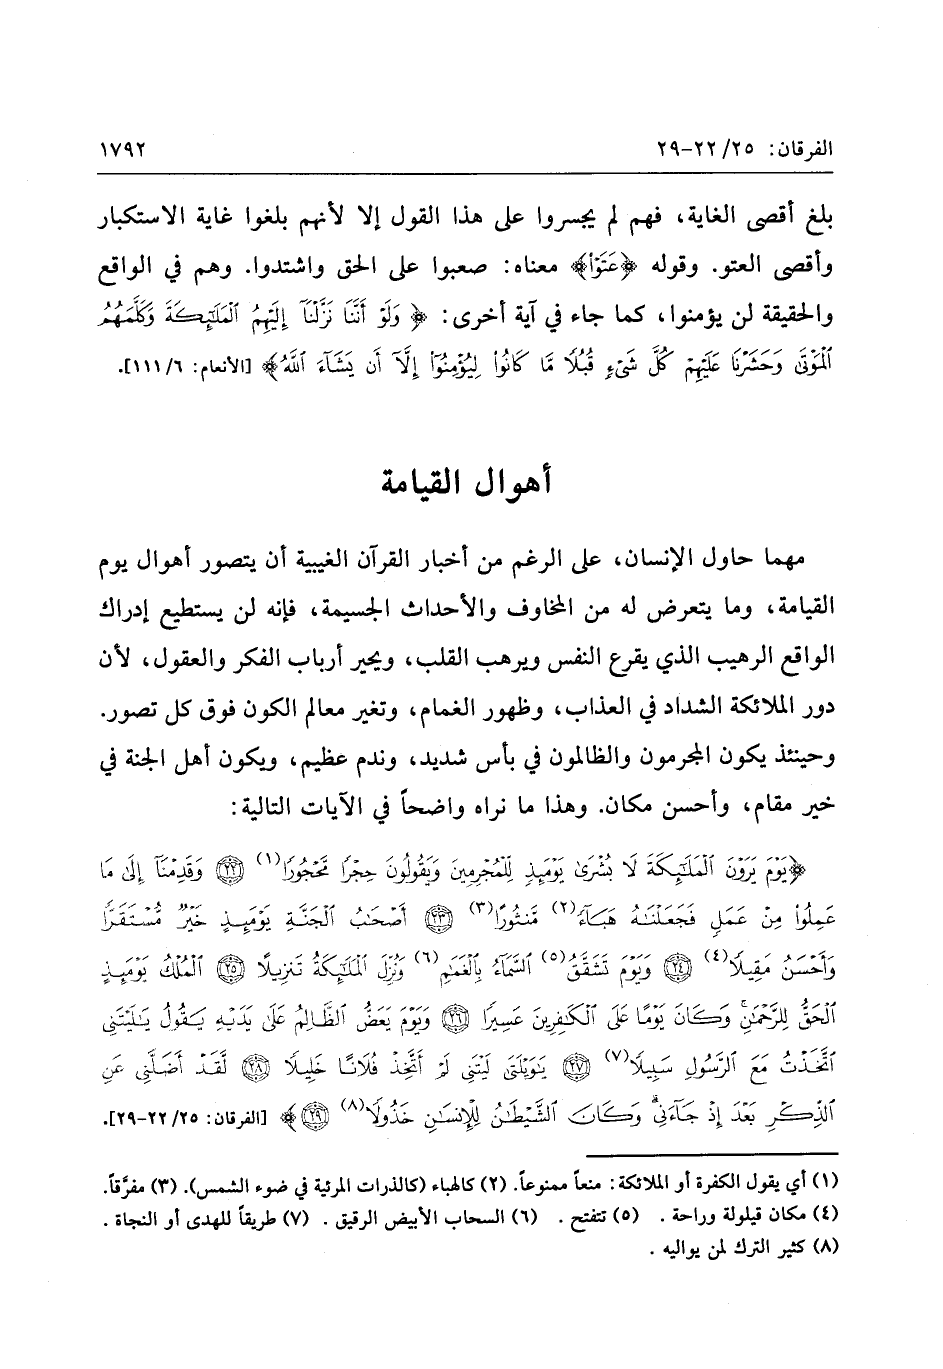 الفرقان: ٢٥/ ٢٢-٢٩ ١٧٩٢
بلغ أقصى الغاية، فهم لم يجسروا على هذا القول إلا لأنهم بلغوا غاية الاستكبار
وأقصى العتو. وقوله ﴿عَتَوْا﴾ معناه: صعبوا على الحق واشتدوا. وهم في الواقع
والحقيقة لن يؤمنوا، كما جاء في آية أخرى: ﴿ وَلَوْ أَنَّنَا نَزَّلْنَآ إِلَيْهِمُ ٱلْمَلَٰٓئِكَةَ وَكَلَّمَهُمُ
ٱلْمَوْتَىٰ وَحَشَرْنَا عَلَيْهِمْ كُلَّ شَىْءٍ قُبُلًا مَّا كَانُوا۟ لِيُؤْمِنُوٓا۟ إِلَّآ أَن يَشَآءَ ٱللَّهُ﴾ [الأنعام: ٦/ ١١١].
أهوال القيامة
مهما حاول الإنسان، على الرغم من أخبار القرآن الغيبية أن يتصور أهوال يوم
القيامة، وما يتعرض له من المخاوف والأحداث الجسيمة، فإنه لن يستطيع إدراك
الواقع الرهيب الذي يقرع النفس ويرهب القلب، ويحير أرباب الفكر والعقول، لأن
دور الملائكة الشداد في العذاب، وظهور الغمام، وتغير معالم الكون فوق كل تصور.
وحينئذ يكون المجرمون والظالمون في بأس شديد، وندم عظيم، ويكون أهل الجنة في
خير مقام، وأحسن مكان. وهذا ما نراه واضحاً في الآيات التالية:
﴿يَوْمَ يَرَوْنَ ٱلْمَلَٰٓئِكَةَ لَا بُشْرَىٰ يَوْمَئِذٍ لِّلْمُجْرِمِينَ وَيَقُولُونَ حِجْرًا مَّحْجُورًا(١) ٢٢ وَقَدِمْنَآ إِلَىٰ مَا
عَمِلُوا۟ مِنْ عَمَلٍ فَجَعَلْنَٰهُ هَبَآءً(٢) مَّنثُورًا(٣) ٢٣ أَصْحَٰبُ ٱلْجَنَّةِ يَوْمَئِذٍ خَيْرٌ مُّسْتَقَرًّا
وَأَحْسَنُ مَقِيلًا(٤) ٢٤ وَيَوْمَ تَشَقَّقُ(٥) ٱلسَّمَآءُ بِٱلْغَمَٰمِ(٦) وَنُزِّلَ ٱلْمَلَٰٓئِكَةُ تَنزِيلًا ٢٥ ٱلْمُلْكُ يَوْمَئِذٍ
ٱلْحَقُّ لِلرَّحْمَٰنِ ۚ وَكَانَ يَوْمًا عَلَى ٱلْكَٰفِرِينَ عَسِيرًا ٢٦ وَيَوْمَ يَعَضُّ ٱلظَّالِمُ عَلَىٰ يَدَيْهِ يَقُولُ يَٰلَيْتَنِى
ٱتَّخَذْتُ مَعَ ٱلرَّسُولِ سَبِيلًا(٧) ٢٧ يَٰوَيْلَتَىٰ لَيْتَنِى لَمْ أَتَّخِذْ فُلَانًا خَلِيلًا ٢٨ لَّقَدْ أَضَلَّنِى عَنِ
ٱلذِّكْرِ بَعْدَ إِذْ جَآءَنِى ۗ وَكَانَ ٱلشَّيْطَٰنُ لِلْإِنسَٰنِ خَذُولًا(٨) ٢٩ ﴾ [الفرقان: ٢٥/ ٢٢-٢٩].
(١) أي يقول الكفرة أو الملائكة: منعاً ممنوعاً. (٢) كالهباء (كالذرات المرئية في ضوء الشمس). (٣) مفرَّقاً.
(٤) مكان قيلولة وراحة . (٥) تتفتح . (٦) السحاب الأبيض الرقيق . (٧) طريقاً للهدى أو النجاة .
(٨) كثير الترك لمن يواليه .